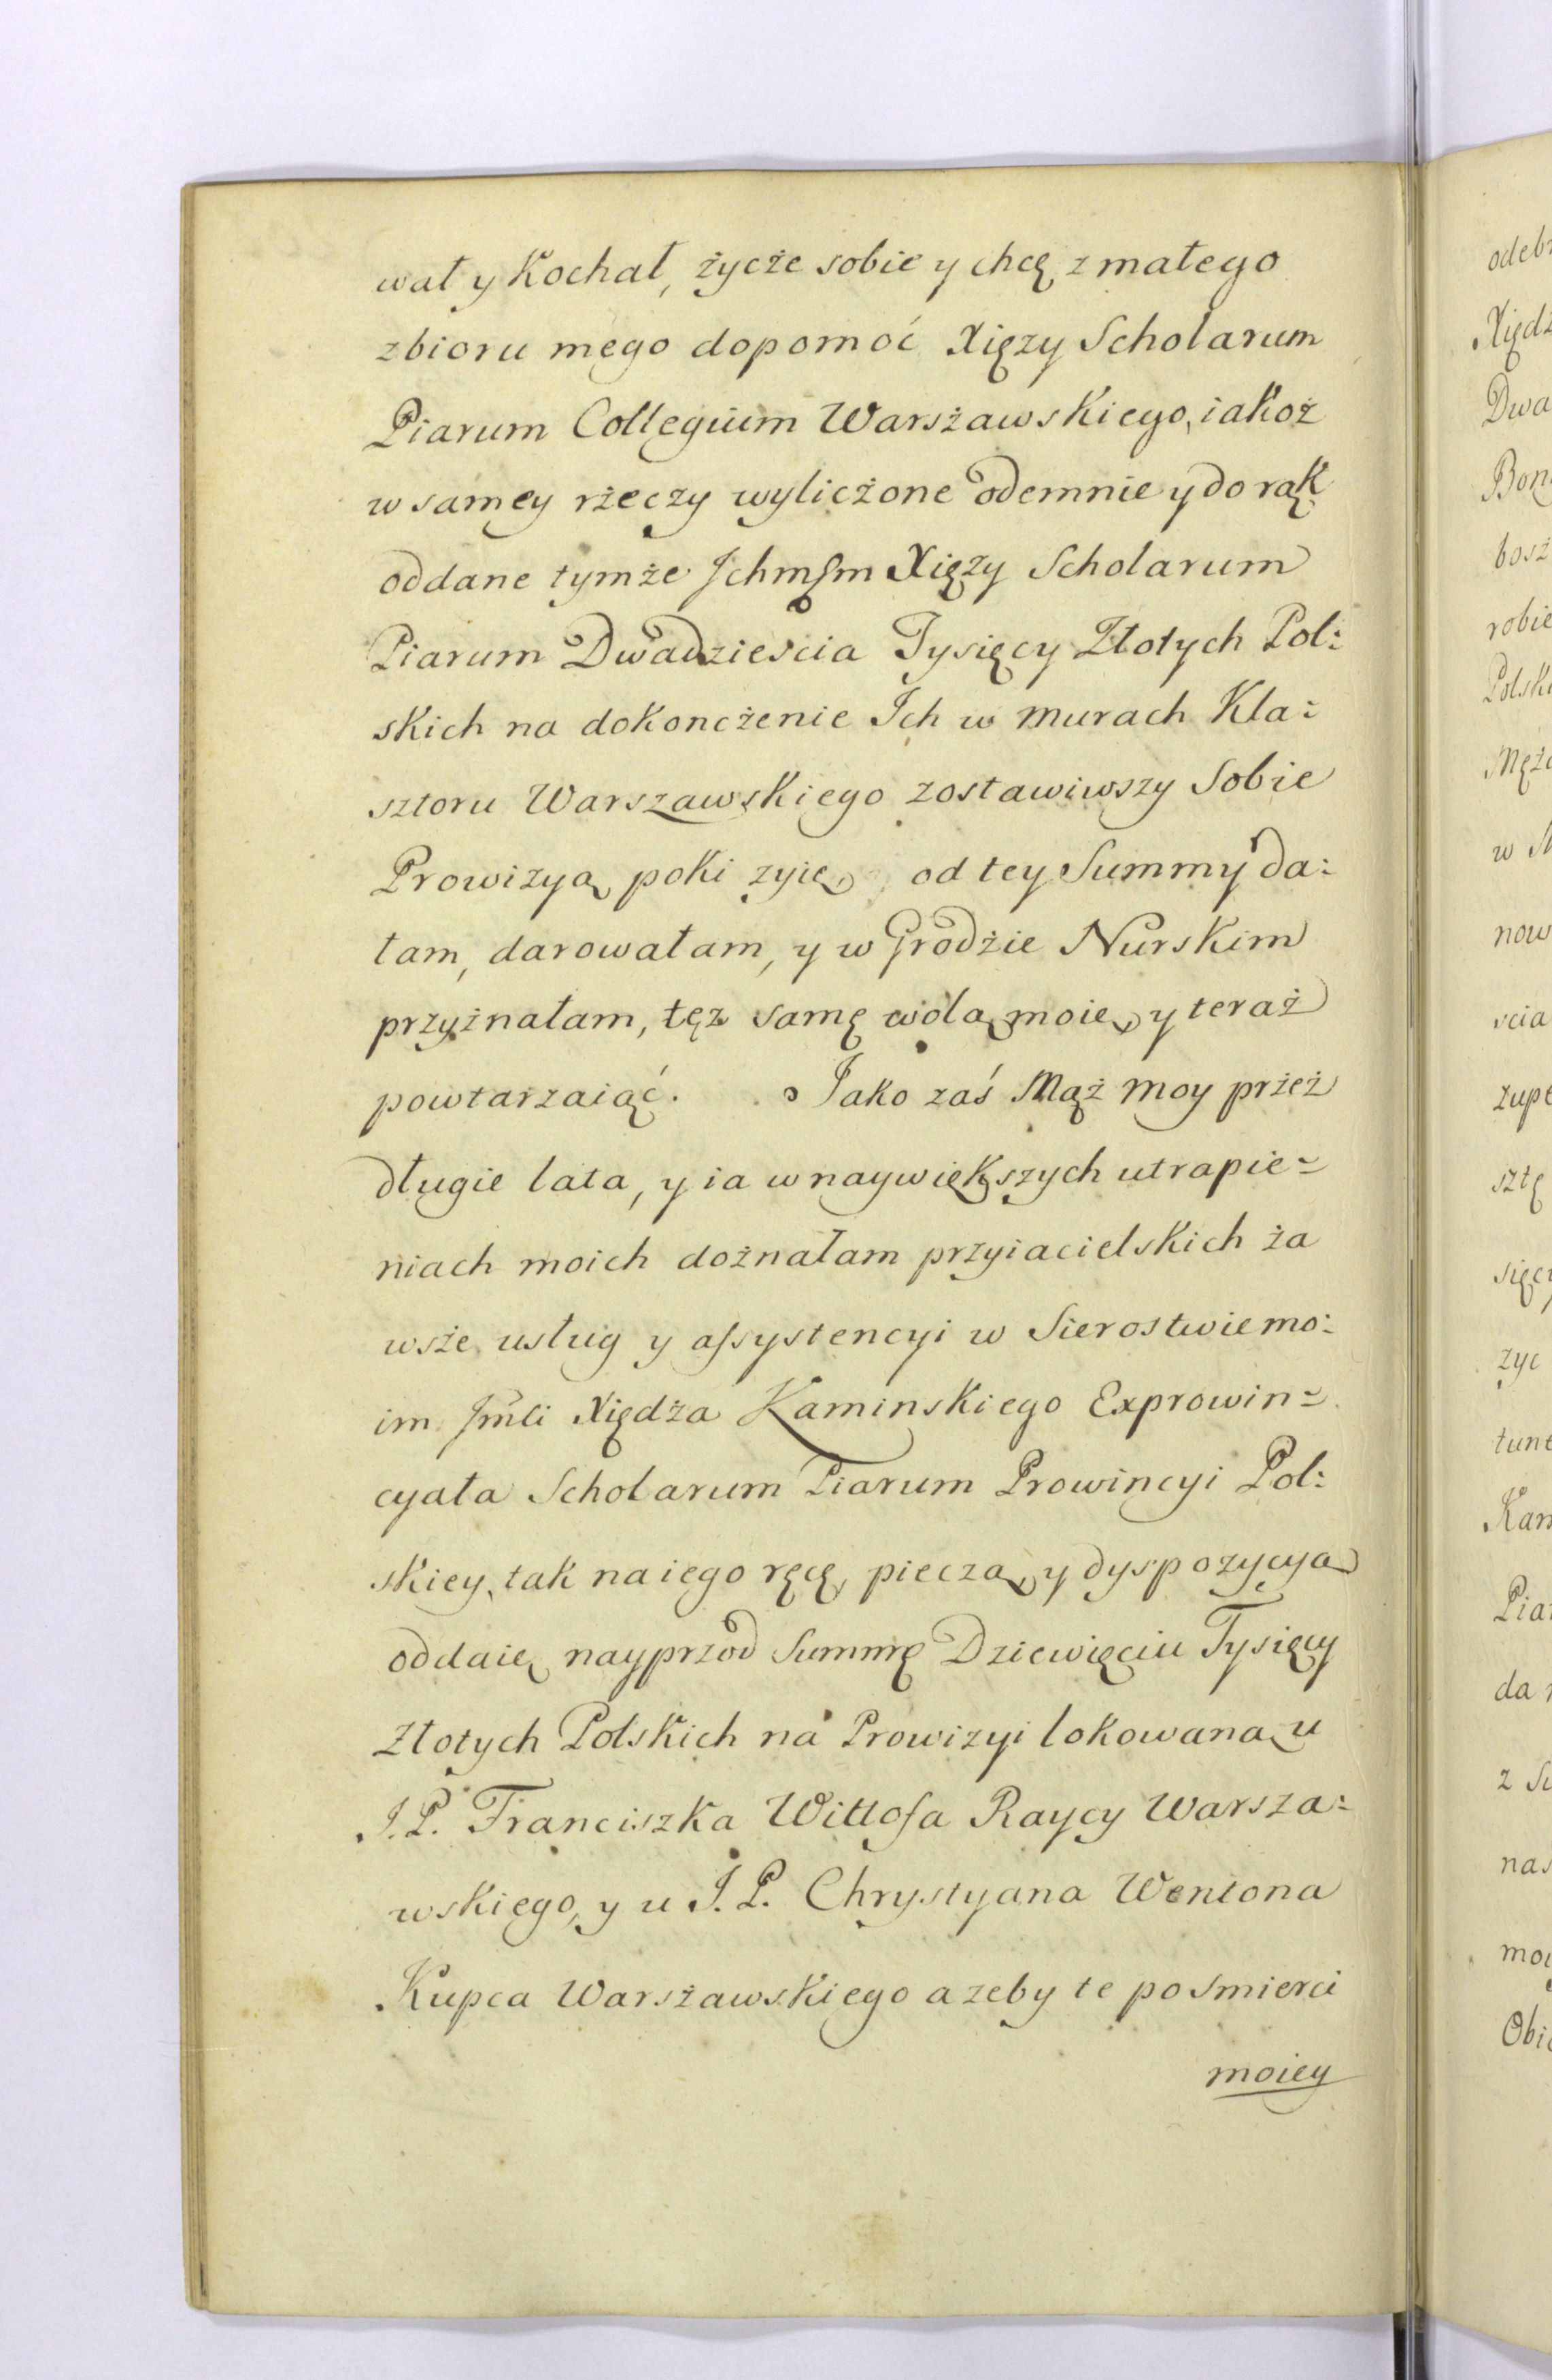 wał y Kochał, życże sobie y chcę z małego
zbioru mego dopomoć Xięzy Scholarum
Piarum Collegium Warsżawskiego, iakoż
w samey rżeczy wyliczżone odemnie y do rąk
oddane tymże Ichmſm Xięzy Scholarum
Piarum Dwadziescia Tysięcy Złotych Pol:
skich na dokoncżenie Ich w murach Kla:
sztoru Warszawskiego zostawiwszy Sobie
Prowizyą poki zyię, od tey Summy da:
łam, darowałam, y w Grodżie Nurskim
przyżnałam, tęz samę wolą moię, y teraż
powtarzaiąć. Jako zaś Mąż moy przeż
długie lata, y ia w naywiększych utrapie=
niach moich dożnałam przyiacielskich ża
wsże usług y aſsystencyi w Sierostwie mo:
im Jmci Xiędża Kaminskiego Exprowin=
cyała Scholarum Piarum Prowincyi Pol:
skiey, tak na iego ręcę, pieczą, y dyspozycyą
oddaię nayprzod Summę Dziewięciu Tysięcy
Złotych Polskich na Prowizyi lokowaną u
J.P. Franciszka Wittoſa Raycy Warsza:
wskiego, y u J.P. Chrystyana Wentona
Kupca Warsżawskiego azeby te po smierci
moiey
odeb
Xiędż
Dwa
bosż
robie
Polsk
now
scia
szlę
zyc
Kam
Pia
da
nas